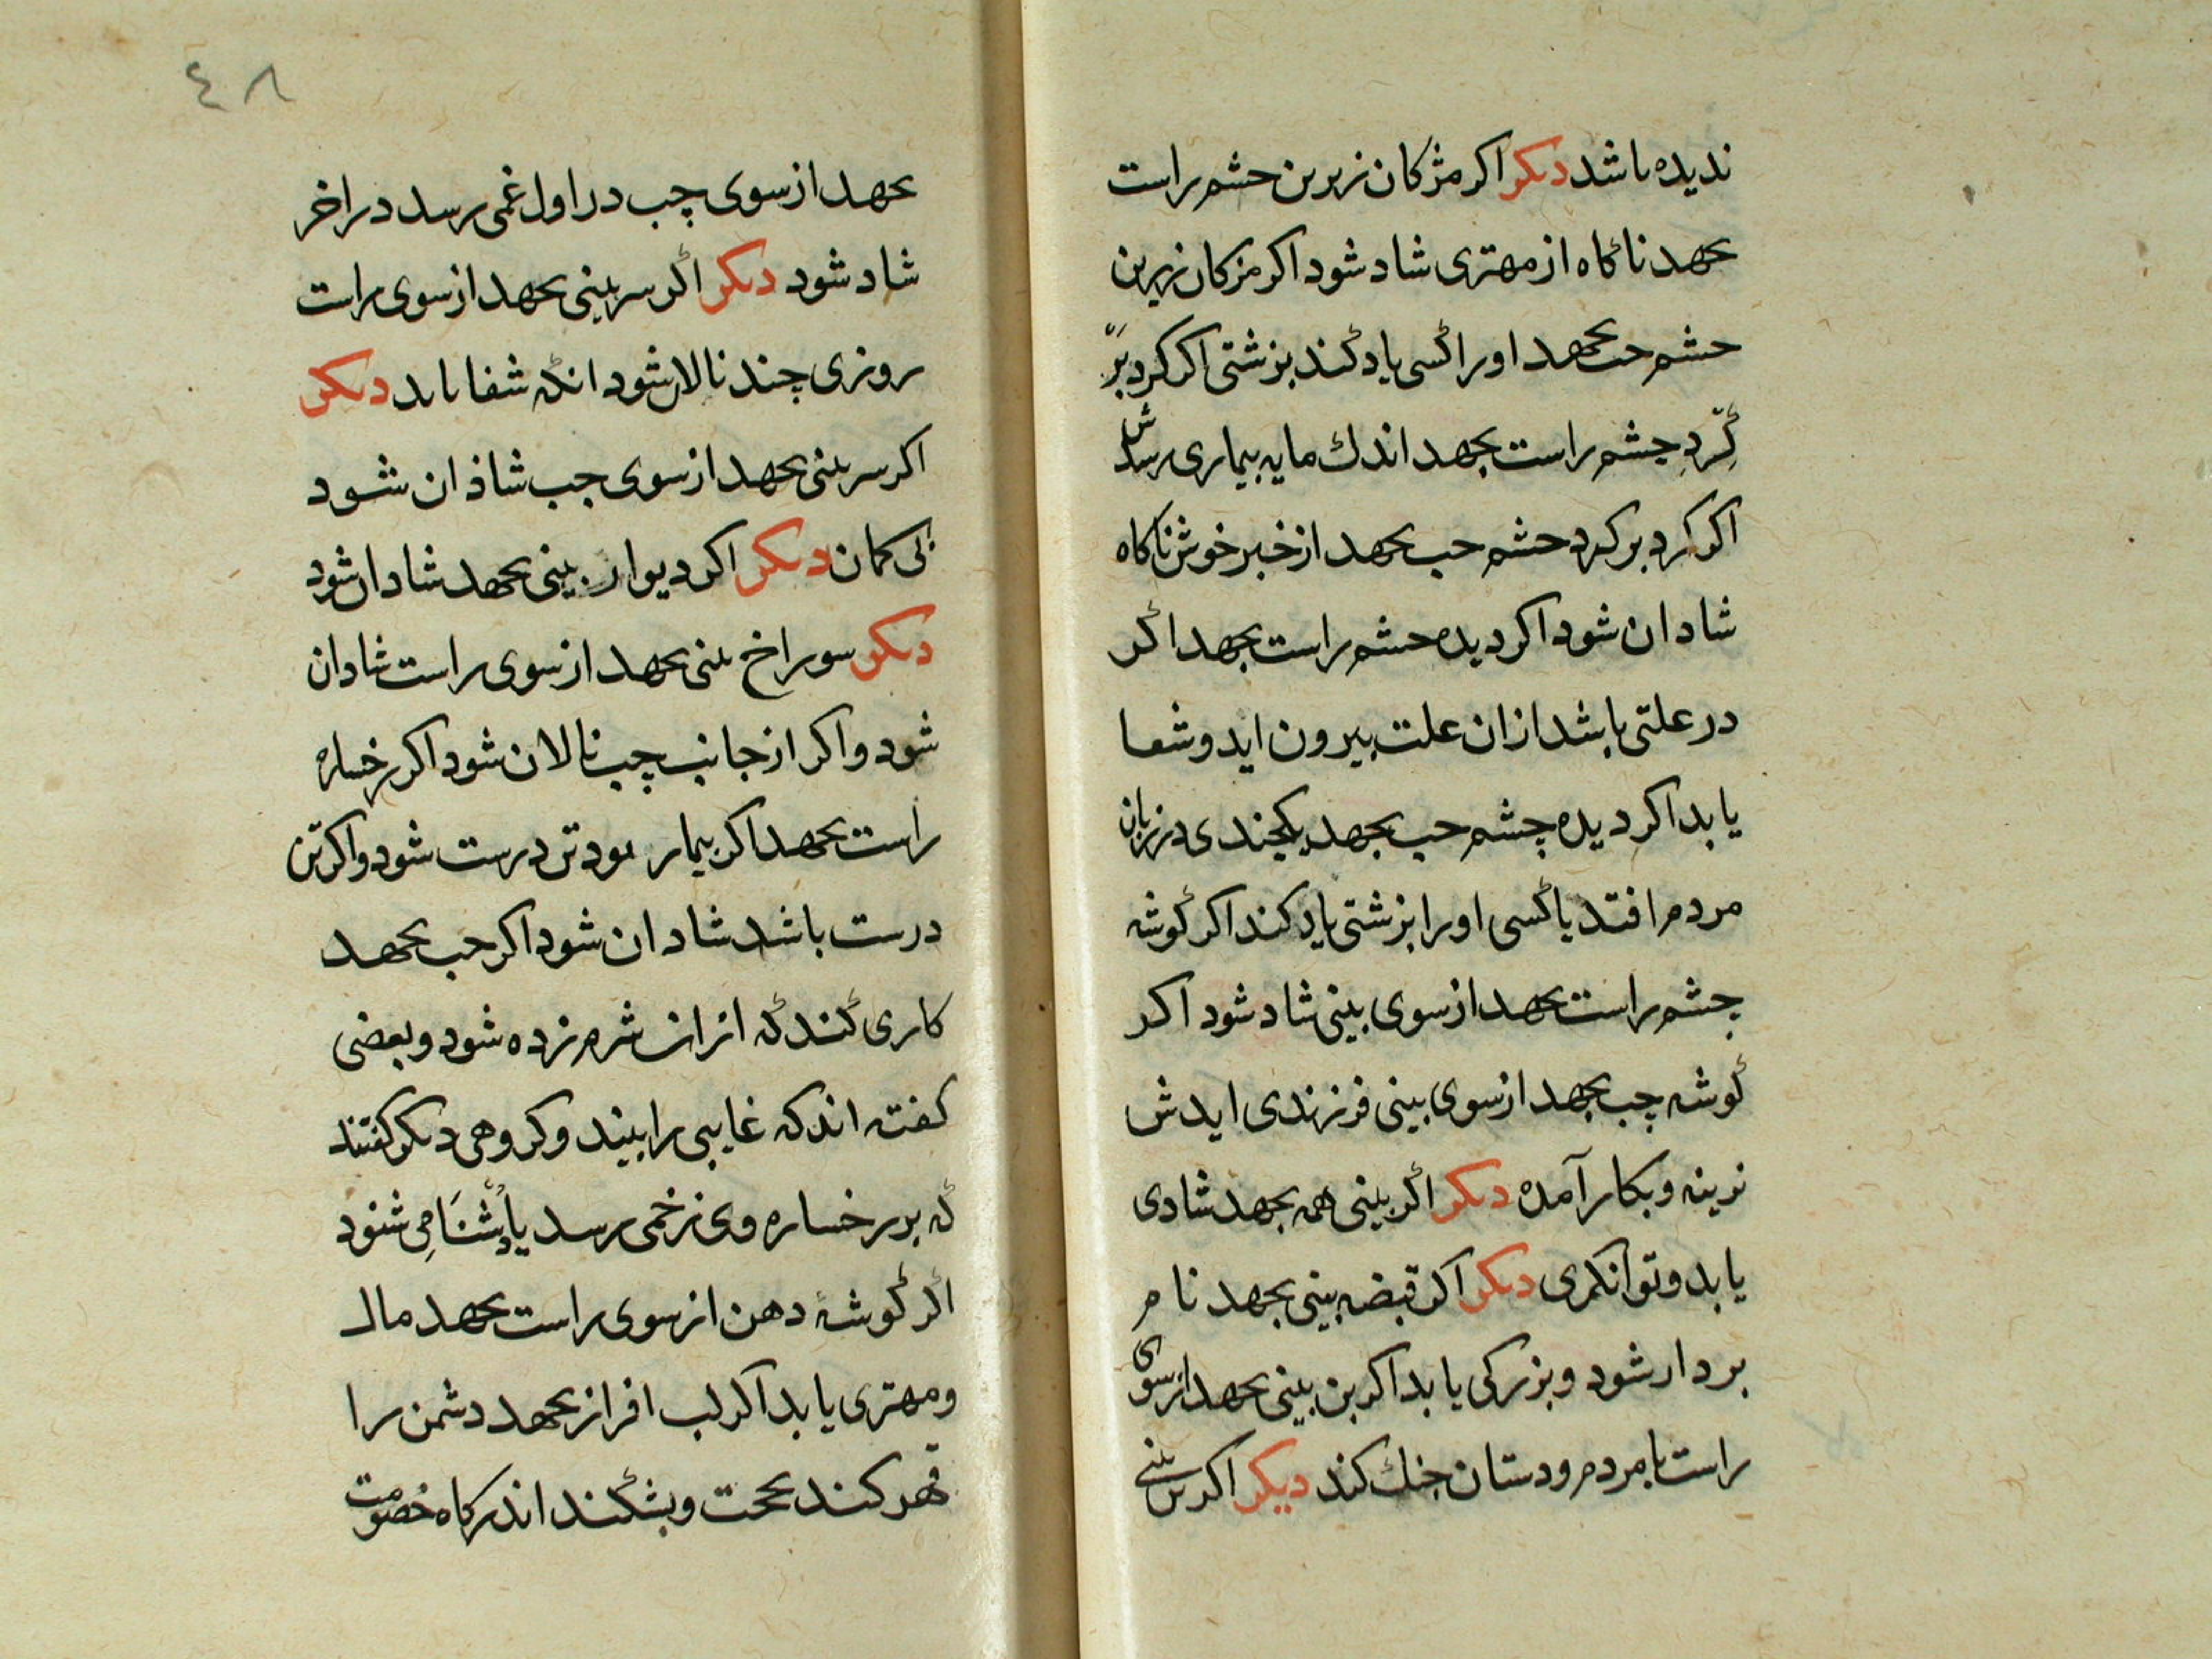 ندیده باشد دیکر اکر مژکان زیرین چشم راست
بجهد ناکاه از مهتری شاد شود اکر مژکان زیرین
چشم چپ بجهد اورا کسی یاد کند بزشتی اکر کرد بَر
کِرّدِ چشم راست بجهد اندك مایه بیماری رسدش
اکر کرد بر کرد چشم چپ بجهد از خبر خوش ناکاه
شادان شود اکر دیده چشم راست بجهد اکر
در علتی باشد ازان علت بیرون اید و شفا
یابد اکر دیده چشم چپ بجهد یکچندی در زبان
مردم افتد یا کسی اورا بزشتی یاد کند اکر کوشه
چشم راست بجهد از سوی بینی شاد شود اکر
کوشه چپ بجهد از سوی بینی فرزندی ایدش
نرینه و بکار آمده دیکر اکر بینی همه بجهد شادی
یابد و توانکری دیکر اکر قبضه بینی بجهد نام
بردار شود و بزرکی یابد اکر بن بینی بجهد از سوی
راست با مردم و دستان جنك کند دیکر اکر بن بینی
٤٨
بجهد از سوی چپ در اول غمی رسد در اخر
شاد شود دیکر اکر سر بینی بجهد از سوی راست
روزی چند نالان شود انکه شفا یابد دیکر
اکر سر بینی بجهد از سوی چپ شاذان شود
بی کمان دیکر اکر دیوار بینی بجهد شادان شود
دیکر سوراخ بینی بجهد از سوی راست شادان
شود و اکر از جانب چپ نالان شود اکر رخساره
راست بجهد اکر بیمار بود تن درست شود و اکر تن
درست باشد شادان شود اکر چپ بجهد
کاری کند که ازان شرم زده شود و بعضی
کفته اند که غایبی را بیند و کروهی دیکر کفتند
که بر رخساره وی زخمی رسد یا دُشْنَامِی شنود
اکر کوشهٔ دهن از سوی راست بجهد مال
و مهتری یابد اکر لب افراز بجهد دشمن را
قهر کند بحجت و بشکند اندر کاه خصومت